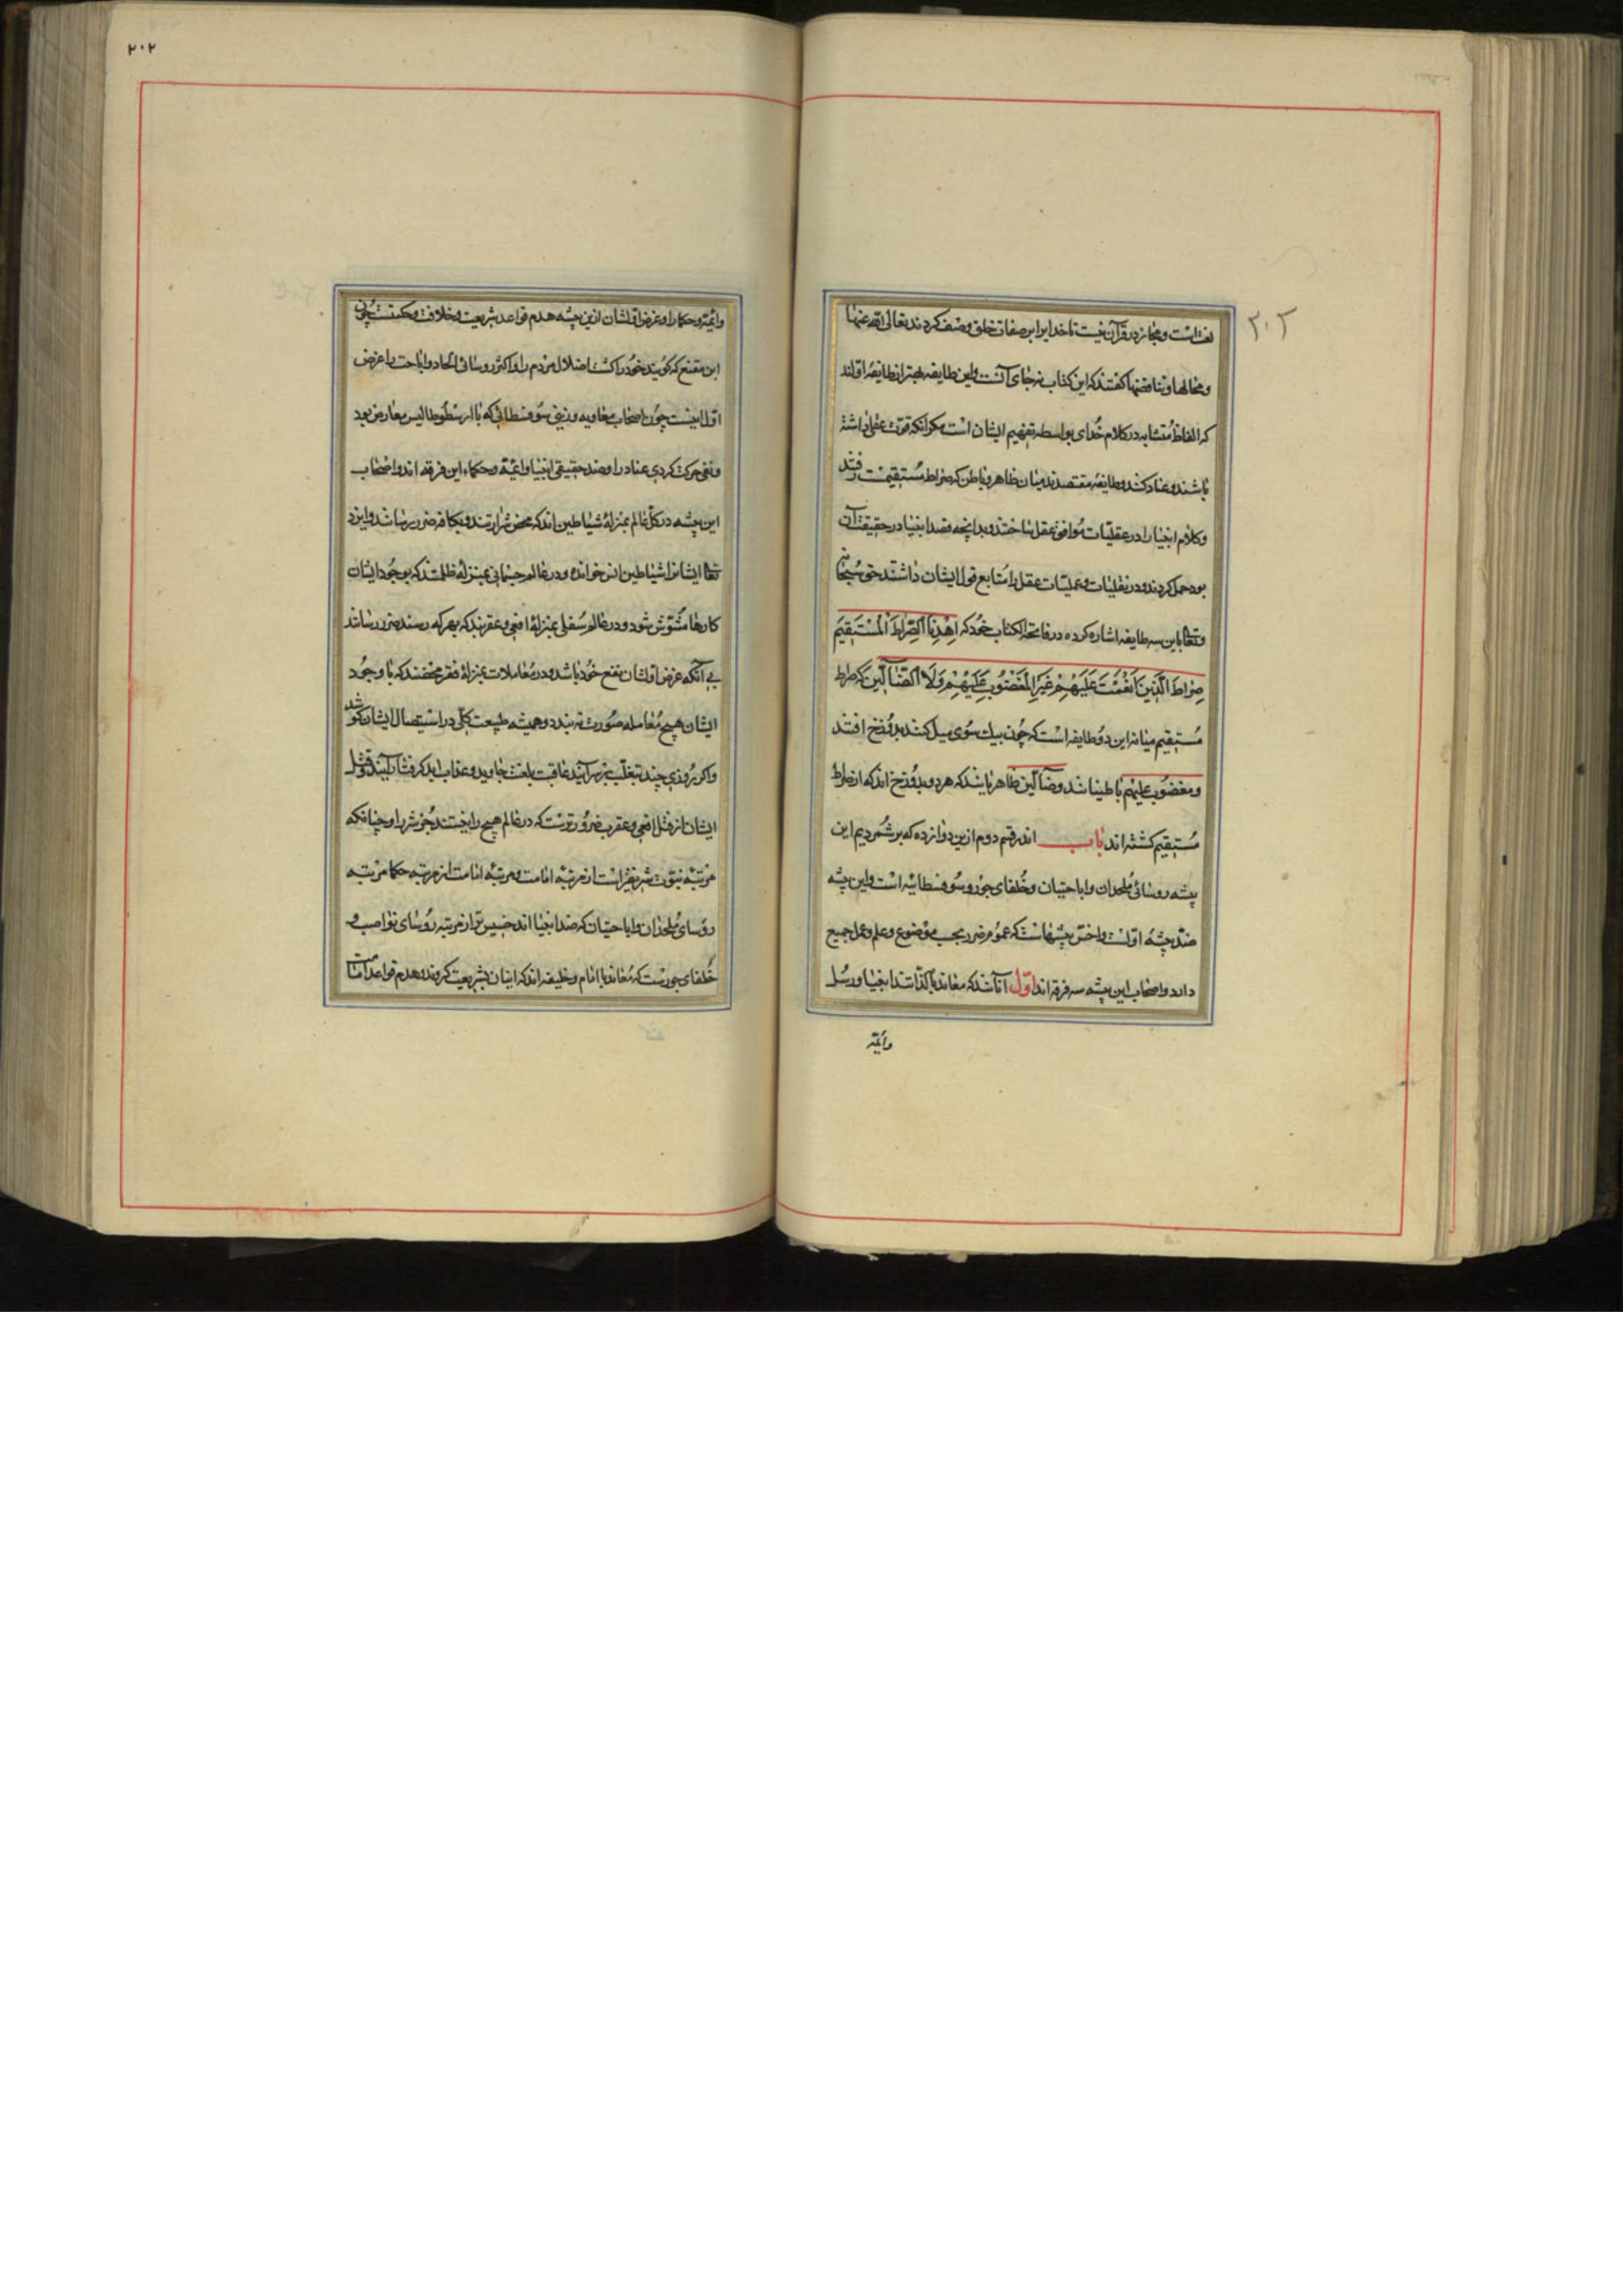 ۲۰۲
لغت است و مجاز در قرآن نیست تا خدایرا بر صفات خلق وصف کردند تعالی الله عنها
و محالها و تناقضها گفتند که این کتاب نه جای آنست و این طایفه بهتر از طایفهٔ اولند
که الفاظ متشابه در کلام خدای بواسطه تفهیم ایشان است مگر آنکه قوت عقلی داشته
باشند و عناد کنند و طایفهٔ مقتصدند میان ظاهر و باطن که صراط مستقیمست رفتند
و کلام انبیا را در عقلیات موافق عقل شناختند و بدانچه قصد انبیا در حقیقت آن
بود حمل کردند و در نقلیات و عملیات عقل را متابع قول ایشان داشتند حق سبحانه
و تعالی باین سه طایفه اشاره کرده در فاتحة الکتاب خود که اِهْدِنَا الصِّرَاطَ الْمُسْتَقِیمَ
صِرَاطَ الَّذِینَ اَنْعَمْتَ عَلَیْهِمْ غَیْرِ الْمَغْضُوبِ عَلَیْهِمْ وَلَا الضَّالِّینَ که صراط
مستقیم میانه این دو طایفه است که چون بیک سوی میل کنند بدوزخ افتند
و مغضوب علیهم باطنیانند و ضالین ظاهریانند که هر دو بدوزخ اند که از صراط
مستقیم گشته اند باب اندر قسم دوم ازین دوازده که بر شمردیم این
پیشه روسائی ملحدان و اباحتیان و خلفای جور و سوفسطاییه است و این پیشه
ضد پیشهٔ اولست و اخس پیشهاست که عموم ضرر بحسب موضوع و علم و عمل جمیع
دارد و اصحاب این پیشه سه فرقه اند اول آنانند که معاند بالذاتند انبیا و رسل
وائمه
۲۰۲
وائمه و حکما را و غرض اولشان ازین پیشه هدم قواعد شریعت و خلافت و حکمتست چون
ابن مقنع که گویند خود را کشت اضلال مردم را و اکثر روسائی الحاد و اباحت را غرض
اول اینست چون اصحاب معاویه و سوفسطائی که با ارسطوطالیس معارض بود
و نفی حرکت کردی عناد را و ضد حقیقی انبیا و ائمة و حکماء این فرقه اند و اصحاب
این پیشه در کل عالم بمنزلهٔ شیاطین اند که محض شرارتند و بکافر ضرر رسانند و ایزد
تعالی ایشانرا شیاطین انس خوانده و در عالم جسمانی بمنزلهٔ ظلمتند که بوجود ایشان
کارها مشوش شود و در عالم سفلی بمنزلهٔ افعی و عقربند که بهر که رسند ضرر رسانند
بی آنکه غرض اولشان نفع خود باشد و در معاملات بمنزلهٔ فقر محضند که با وجود
ایشان هیچ معامله صورت نه بندد و همیشه طبیعت کلی در استیصال ایشان کوشد
و اگر روزی چند بتغلب بر سر آیند عاقبت بلعنت جاوید و عذاب ابد گرفتار آیند و قتل
ایشان از قتل افعی و عقرب ضرورترست که در عالم هیچ را نیستند بجز شر را و چنانکه
مرتبهٔ نبوت شریفتر است از مرتبهٔ امامت و مرتبهٔ امامت از مرتبه حکما مرتبه
روسای ملحدان و اباحتیان که ضد انبیا اند خسیس تر از مرتبه روسای نواصب و
خلفای جورست که معاند با امام و خلیفه اند که اینان بشریعت گروند و هدم قواعد